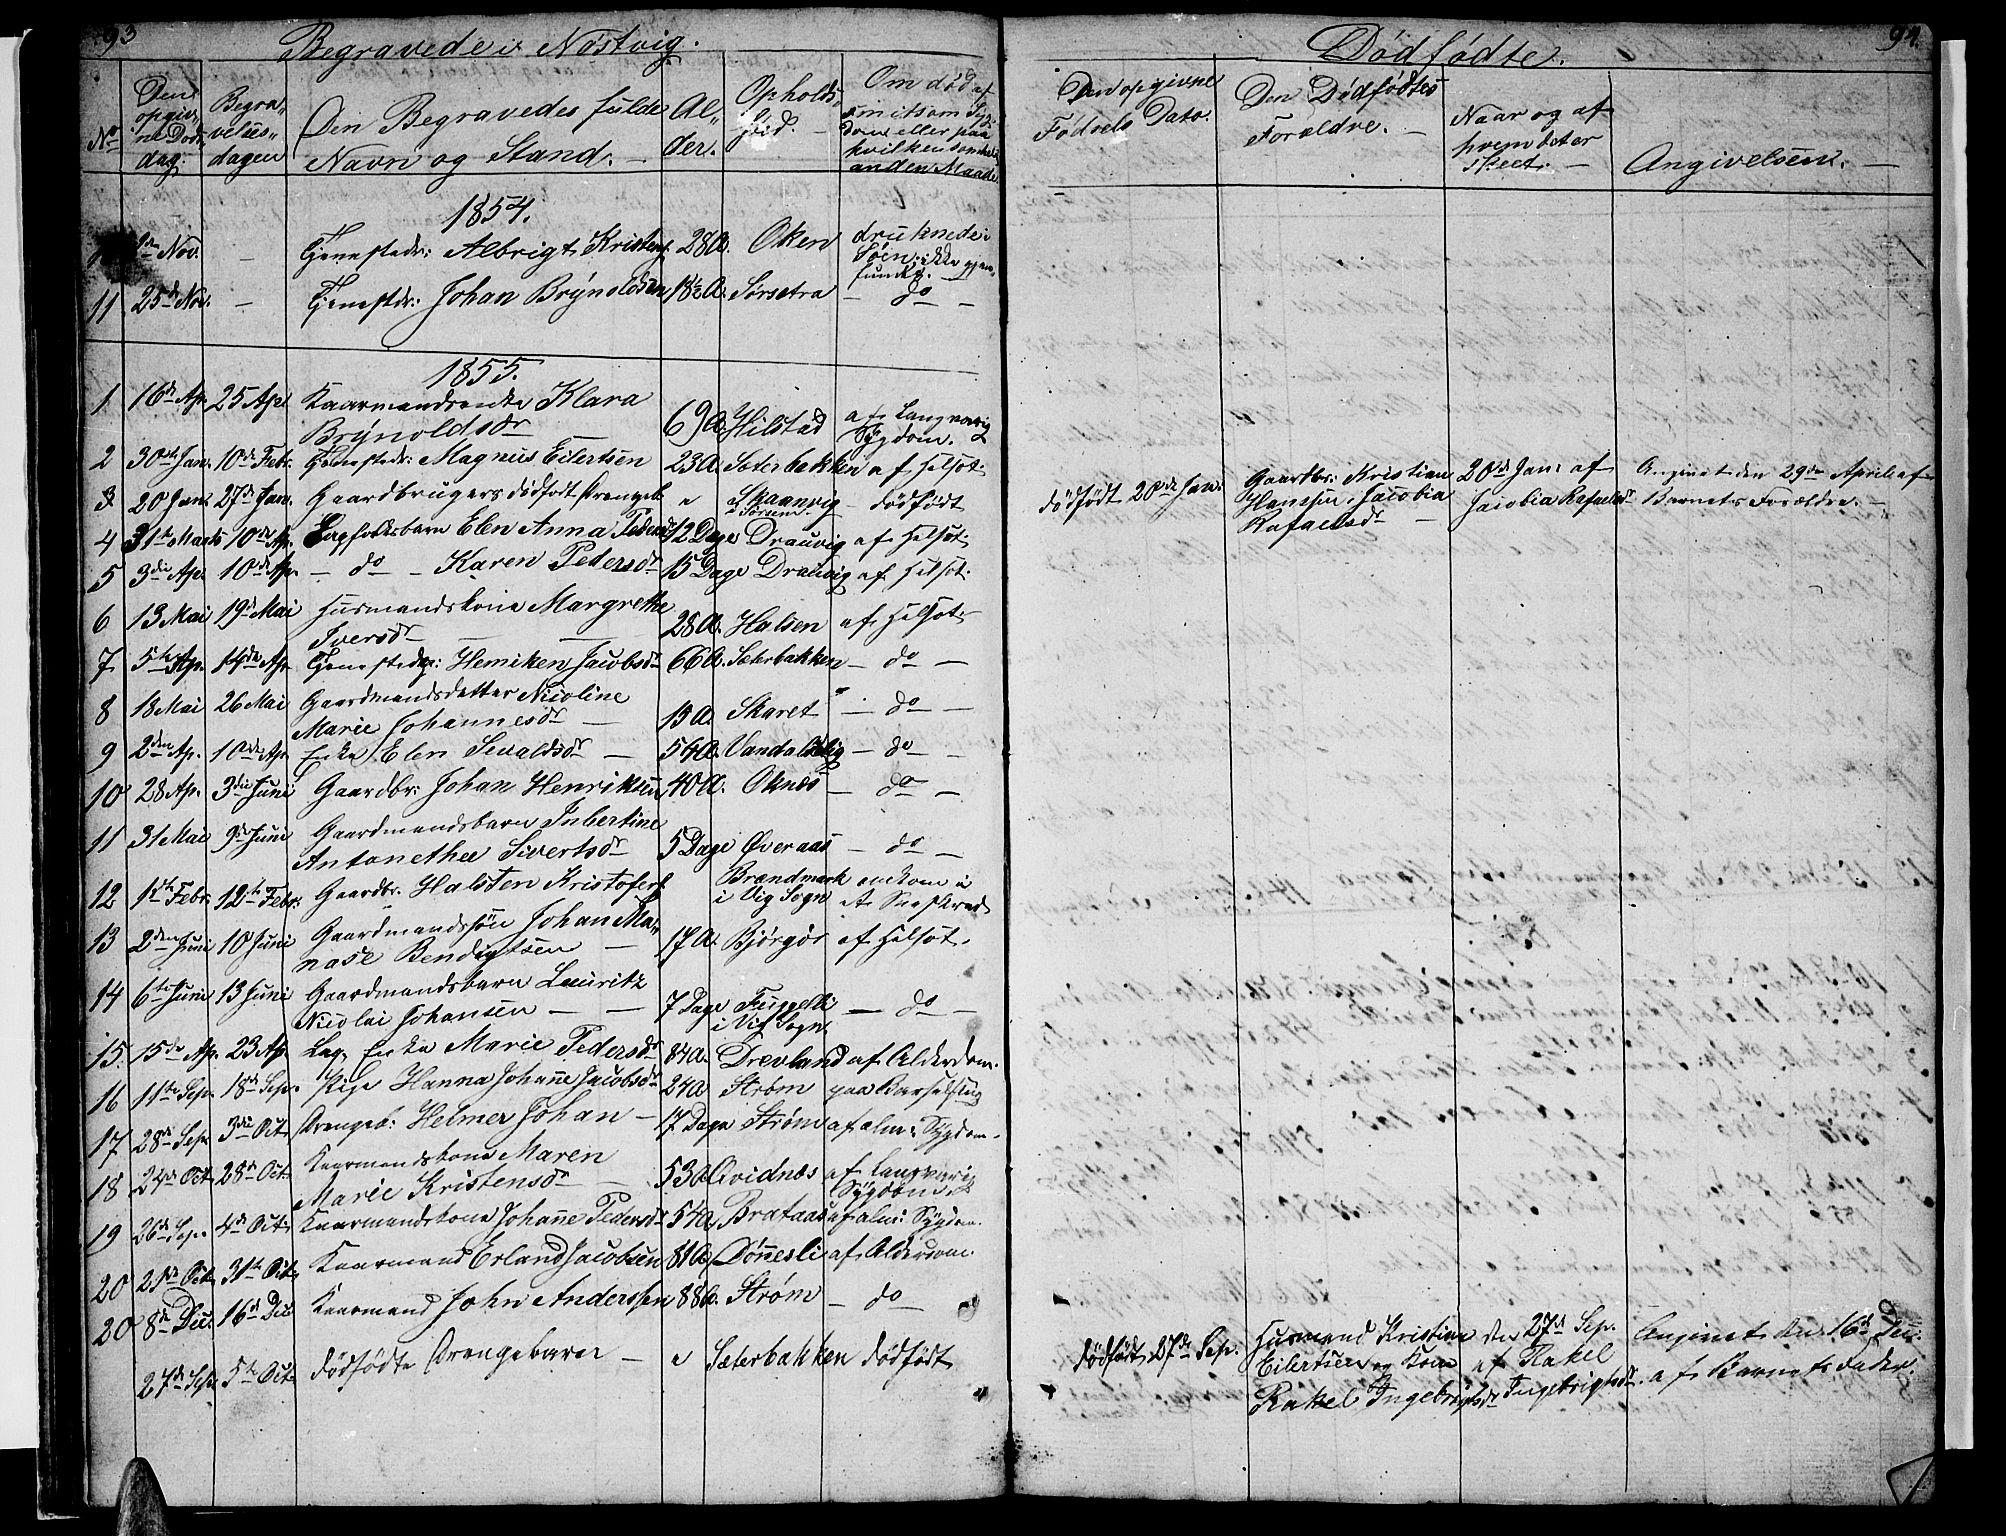 93
Begravede i Nöstvig.
No
Den opgivne Döds dag.
Begra„velses„dagen
Den Begravedes fulde Navn og Stand. —
Al„der.
Opholds
Om död af smitsom Syg:dom eller paa hvilkensomhelst anden Maade
1854.
Nov. — Tjenestedr: Albrigt Kristens. 28 A. Oken druknede i Söen; ikke gjen„funden. —
11 25de Nov. — Tjenestdr: Johan Brÿnoldsen 18½ A. Sörsetra — do —
1855.
1 16de Ap. 25 Apl Kaarmandsenke Klara
Brÿnoldsdr — 69 A. Hilstad af langvarig Sÿgdom.
2 30te Jan. 10de Febr. Tjenestedr: Magnus Eilertsen 23 A. Sæterbakken af Helsot.
3 20 Jan. 27de Jan. Gaardbrugers dödfödt Drengeb. " Skaanvig dödfödt
4 31te Marts 10de Ap. Lapfolksbarn Elen Anna Pedersdr 12 Dage Drauvig af Helsot.
5 3die Ap. 10de Ap. — do — Karen Pedersdr 15 Dage Drauvig af Helsot.
6 13 Mai 19de Mai Husmandskone Margrethe
Iversdr — 28 A. Halsen af Helsot.
7 5te Ap. 14de Ap. Tjenestedp: Hemiken Jacobsdr 66 A. Sæterbakken — do —
8 18 Mai 26 Mai Gaardmandsdatter Nicoline
Marie Johannesdr — 13 A. Skaret — do —
9 2den Ap. 10de Ap. Enke Elen Sivaldsdr — 54 A. — do —
10 28 Ap. 3die Juni Gaardbr: Johan Henriksen 40 A. Oknes — do —
11 31 Mai 9de Juni Gaardmandsbarn Inbertine
Antonethee Sivertsdr 5 Dage Överaas — do —
12 1te Febr. 12te Febr. Gaardbr. Halsten Kristofers. Brændmark i Vig Sogn omkom i et Sneskred
13 2den Juni 10 Juni Gaardmandssön Johan Ma„
nase Bendigtsen — 17 A. Bjórgós af Helsot.
14 6te Juni 13 Juni Gaardmandsbarn Lauritz
Nicolai Johansen — — 7 Dage Fuggelli i Vig Sogn — do —
15. 15de Ap. 23 Ap. Lag. Enke Marie Pedersdr 84 A. Drevland af Alderdom.
16 11te Sep. 18de Sep. Pige Hanna Johañe Jacobsdr 24 A Ström paa Barselseng
17 28de Sep. 3die Oct. Drengeb: Helmer Johan — 17 Dage Ström af alm: Sÿgdom.
18 24de Oct. 28de Oct. Kaarmandskone Maren
Marie Kristensdr — 53 A. Qvidnes af langvarig Sÿgdom
19 26de Sep. 4de Oct. Kaarmandskone Johañe Pedersdr 54 A. Brataas af alm: Sÿgdom.
20 21de Oct. 31te Oct. Kaarmand Erland Jacobsen 81 A. Döñesli af Alderdom.
20 8de Dec. 16de Dec. Kaarmand John Anderssen 88 A. Ström — do —
27de Sep. 5te Oct. dödfödte Drengebarn — " Sæterbakken dödfödt
94.
Dödfödte.
Den opgivne Födsels Dato.
Den Dödfödtes Forældre. —
Naar og af hvem det er skeet. —
Angivelsen. —
dödfödt 20de Jan: Gaardbr: Kristian Hanssen, Jacobia Rafaelsdr — 20de Jan: af Jacobia Rafaelsdr Angivet den 29de April af Barnets Forældre. —
dödfödt 27de Sep. Husmand Kristian Eilertsen og Kone Rakel Ingebrigtsdr den 27de Sep. af Rakel Ingebrigtsdr. Angivet den 16de Dec. af Barnets Fader.